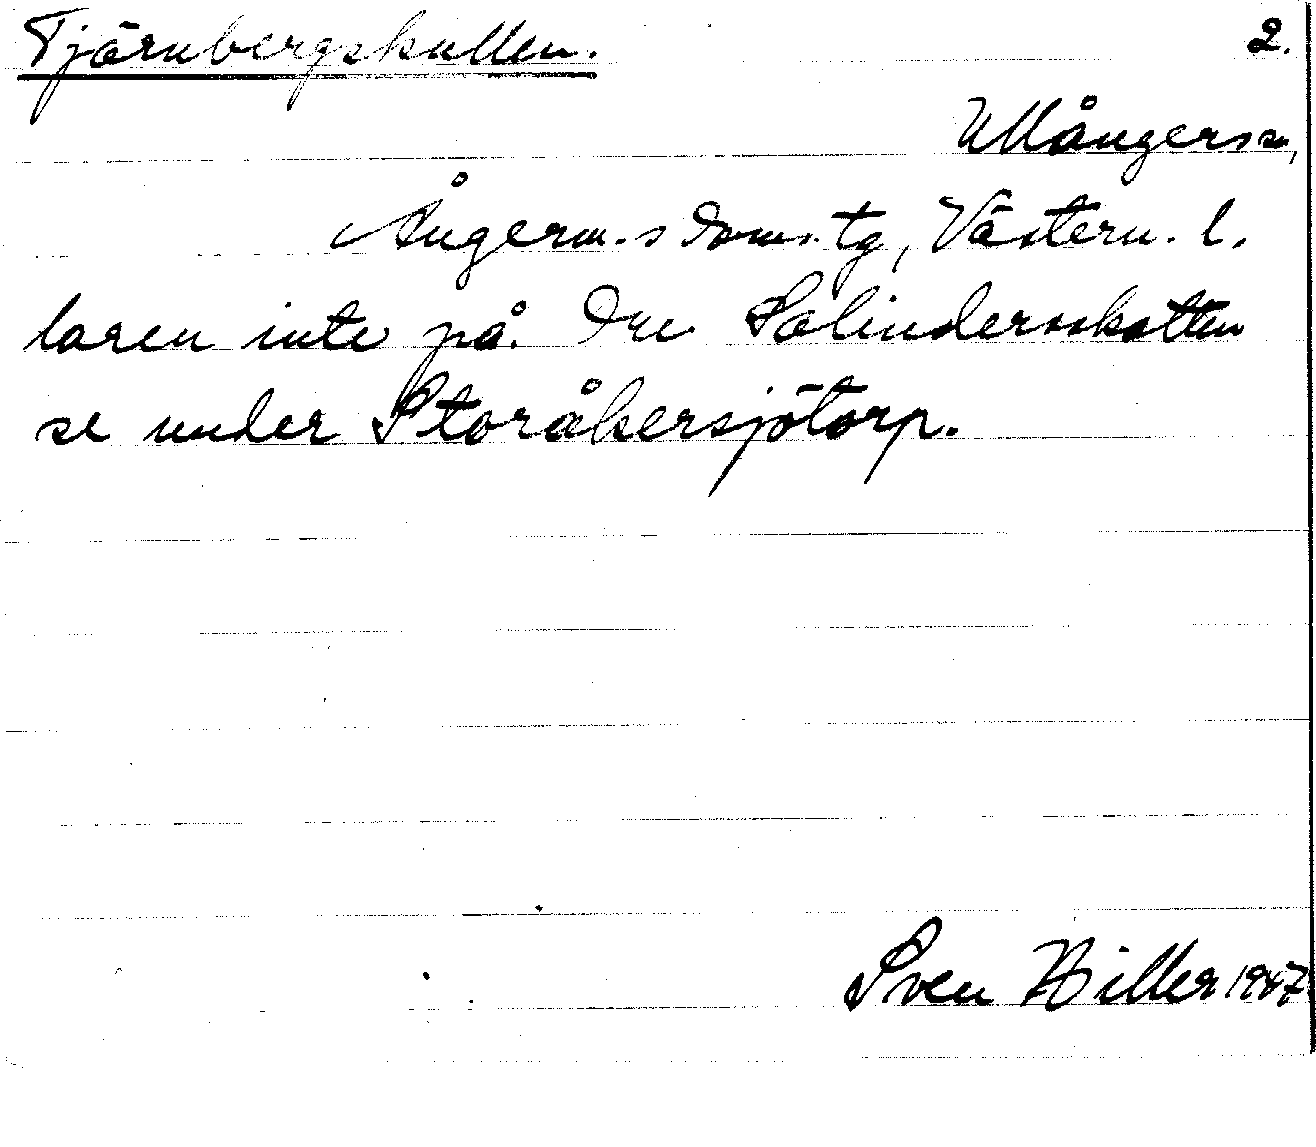 Tjärnbergskullen. 2.
Ullångers sn,
Ångerm.s doms. tg, Västern. l.
laren inte på. Om Salindersskatten
se under Storåkersjötorp.
Sven Hiller 1947